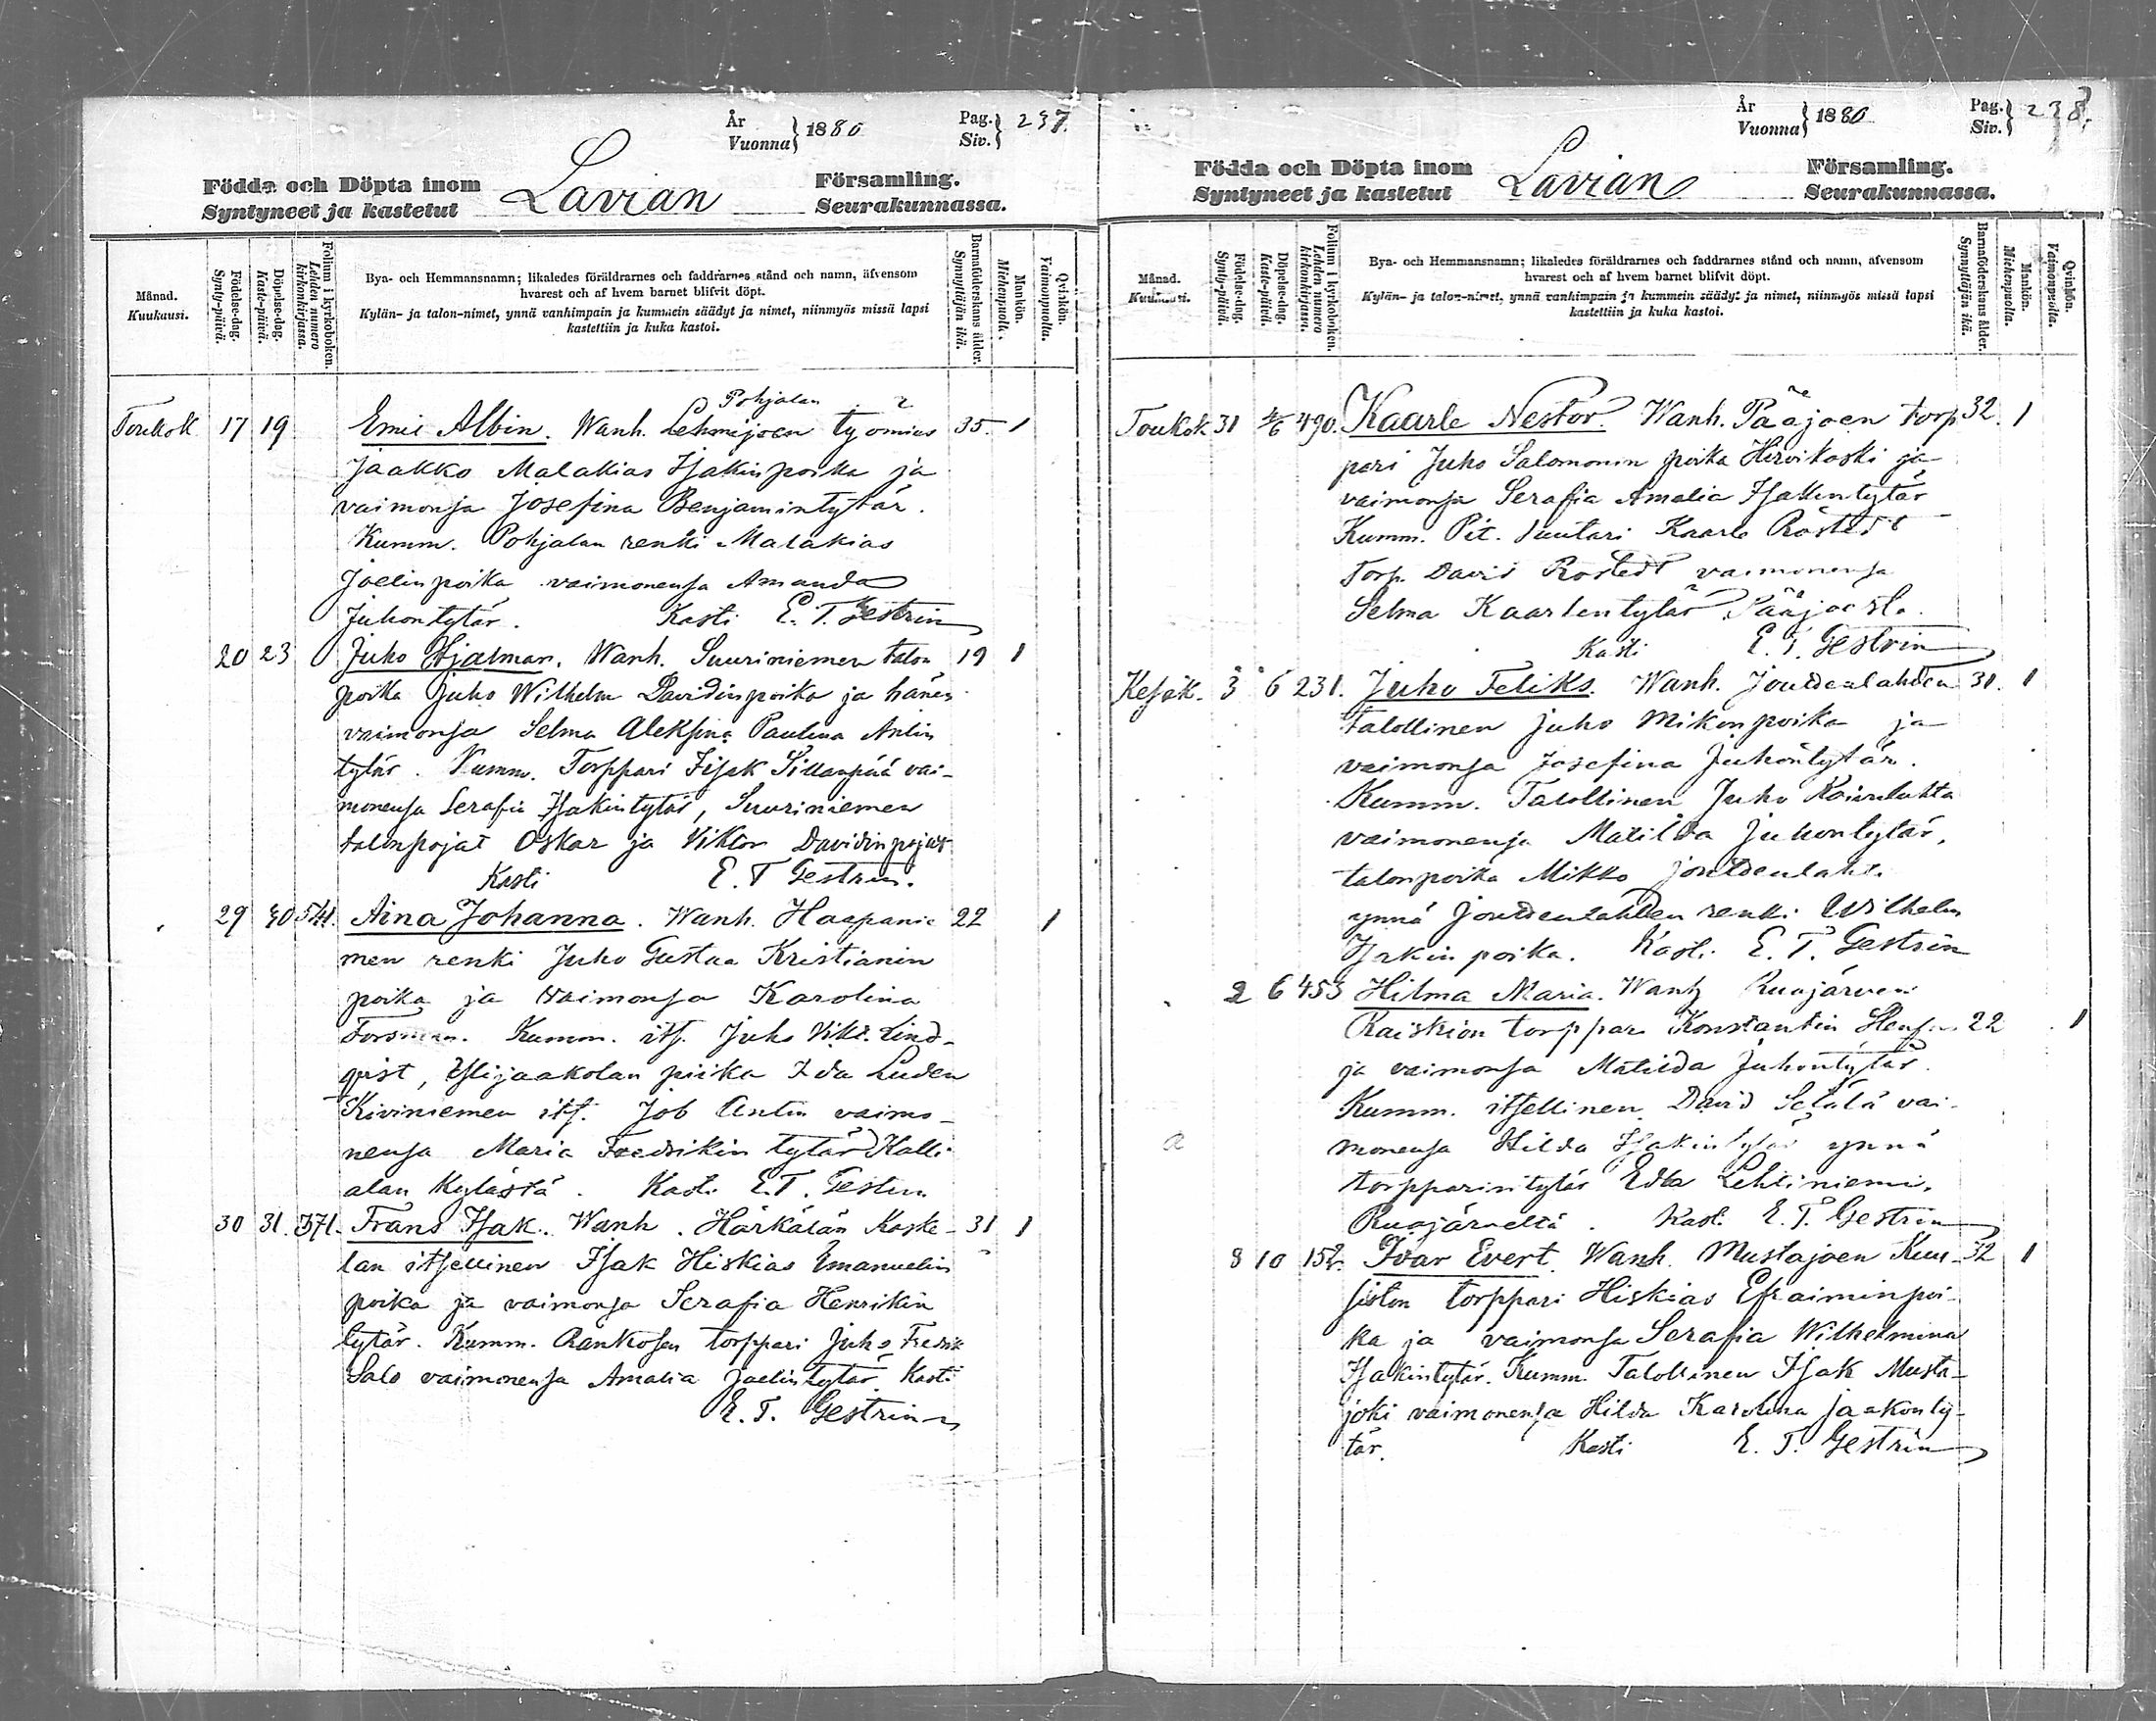 År
Vuonna } 1880
Pag.
Siv. } 237.
Födda och Döpta inom
Syntyneet ja kastetut
Lavian
Församling.
Seurakunnassa.
Månad.
Kuukausi.
Födelse-dag.
Synty-päivä.
Döpelse-dag.
Kaste-päivä.
Folium i kyrkoboken.
Lehden numero kirkonkirjassa.
Bya- och Hemmansnamn; likaledes föräldrarnes och faddrarnes stånd och namn, äfvensom
hvarest och af hvem barnet blifvit döpt.
Kylän- ja talon-nimet, ynnä vanhimpain ja kummein säädyt ja nimet, niinmyös missä lapsi
kastettiin ja kuka kastoi.
Barnaföderskans ålder.
Synnyttäjän ikä.
Mankön.
Miehenpuolta.
Qvinkön.
Vaimonpuolta.
Pohjalan
Toukok 17 19 Emil Albin. Wanh. Lehmijoen työmies 35. 1
Jaakko Malakias Isakinpoika ja
vaimonsa Josefina Benjamintytär.
Kumm. Pohjalan renki Malakias
Joelinpoika vaimonensa Amanda
Juhontytär. Kasti E. T. Gestrin
20 23 Juho Hjalmar. Wanh. Suuriniemen talon 19 1
poika Juho Wilhelm Davidinpoika ja hänen
vaimonsa Selma Aleksina Paulina Antin
tytär. Kumm. Torppari Isak Sillanpää vai-
monensa Serafia Isakintytär, Suuriniemen
talonpojat Oskar ja Viktor Davidinpojat
Kasti E. T Gestrin.
29 30 541. Aina Johanna. Wanh. Haapanie 22 1
men renki Juho Gustaa Kristianin
poika ja vaimonsa Karolina
Forsman. Kumm. its. Juho Vikt. Lind-
qvist, Ylijaakolan piika Ida Luden
Kiviniemen its. Job Antin vaimo-
nensa Maria Fredrikin tytär Kalli
alan kylästä. Kasti E. T. Gestrin
30 31. 571. Frans Isak. Wanh. Härkälän Koske- 31 1
lan itsellinen Isak Hiskias Emanuelin
poika ja vaimonsa Serafia Henrikin
tytär. Kumm. Rankosen torppari Juho Fredrik
Salo vaimonensa Amalia Joelintytär. Kasti
E. T. Gestrin
År
Vuonna } 1880
Pag.
Siv. } 238.
Födda och Döpta inom
Syntyneet ja kastetut
Lavian
Församling.
Seurakunnassa.
Månad.
Kuukausi.
Födelse-dag.
Synty-päivä.
Döpelse-dag.
Kaste-päivä.
Folium i kyrkoboken.
Lehden numero kirkonkirjassa.
Bya- och Hemmansnamn; likaledes föräldrarnes och faddrarnes stånd och namn, äfvensom
hvarest och af hvem barnet blifvit döpt.
Kylän- ja talon-nimet, ynnä vanhimpain ja kummein säädyt ja nimet, niinmyös missä lapsi
kastettiin ja kuka kastoi.
Barnaföderskans ålder.
Synnyttäjän ikä.
Mankön.
Miehenpuolta.
Qvinkön.
Vaimonpuolta.
Toukok 31 490. Kaarle Nestor. Wanh. Pääjoen torp 32. 1
pari Juho Salomonin poika Hirvikoski ja
vaimonsa Serafia Amalia Isakintytär
Kumm. Pit. suutari Kaarle Rostedt
Torp. David Rostedt vaimonensa
Selma Kaarlentytär Pääjoesta.
Kasti E. T. Gestrin
Kesäk. 3 6 231. Juho Feliks. Wanh. Joutsenlahden 31. 1
talollinen Juho Mikonpoika ja
vaimonsa Josefina Juhontytär.
Kumm. Talollinen Juho Koivulahta
vaimonensa Matilda Juhontytär,
talonpoika Mikko Joutsenlaht.
ynnä Joutsenlahden renki Wilhelm
Isakin poika. Kasti E. T. Gestrin
2 6 453 Hilma Maria. Wanh Ruojärven
Raiskion torppari Konstantin 22 1
ja vaimonsa Matilda Juhontytär.
Kumm. itsellinen David Setälä vai-
monensa Hilda Isakintytär ynnä
torpparintytär Edla Lehtiniemi,
Ruojärveltä. Kasti E. T. Gestrin
8 10 152. Ivar Evert. Wanh. Mustajoen Kuu- 32 1
siston torppari Hiskias Efraiminpoi-
ka ja vaimonsa Serafia Wilhelmina
Isakintytär. Kumm. Talollinen Isak Musta-
joki vaimonensa Hilda Karolina Jaakonty-
tär. Kasti E. T. Gestrin